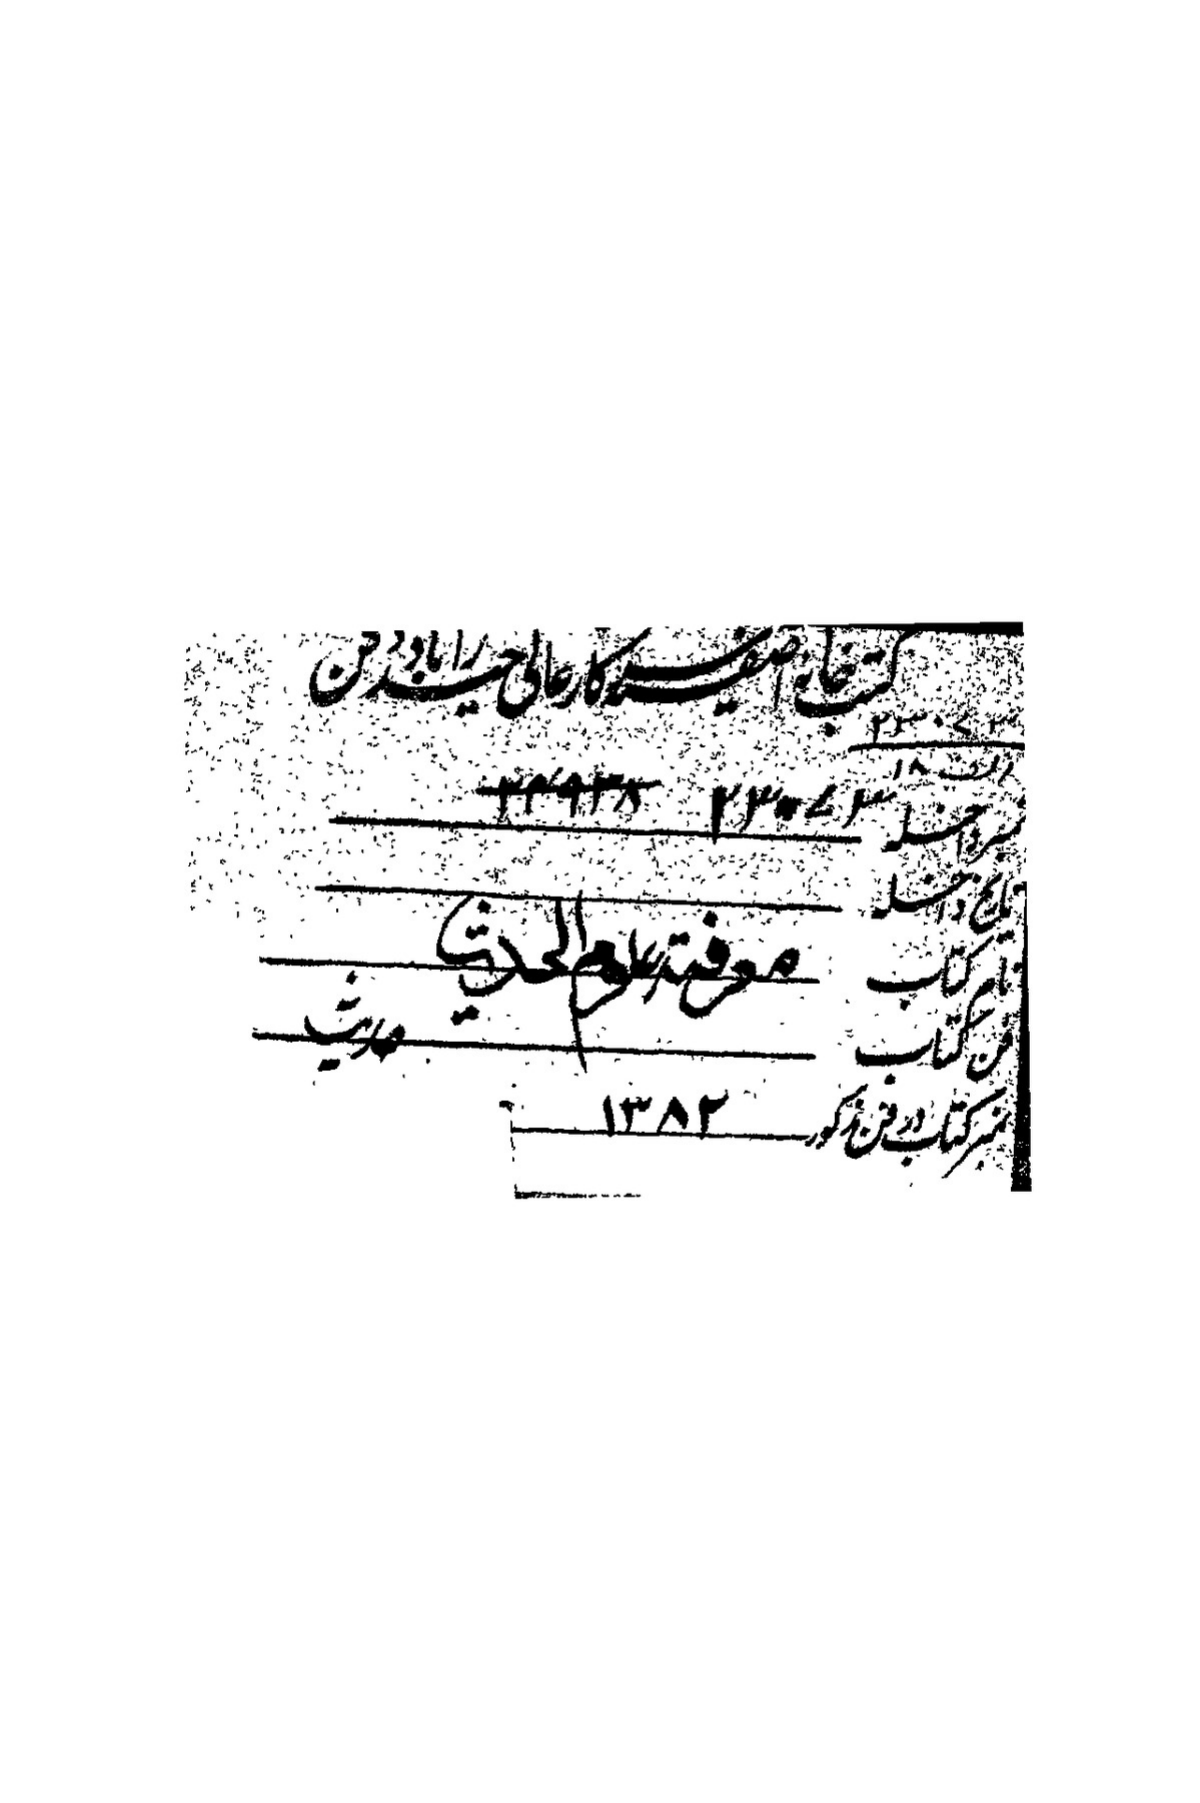 کتب خانہ آصفیہ سرکار عالی حیدرآباد دکن
۲۳۰۷۳
۱۸
نمبر داخلہ ۲۳۰۷۳ ۳۴۹۳۸
تاریخ داخلہ
نام کتاب معرفة علوم الحدیث
فن کتاب حدیث
نمبر کتاب در فن مذکور ۱۳۸۲